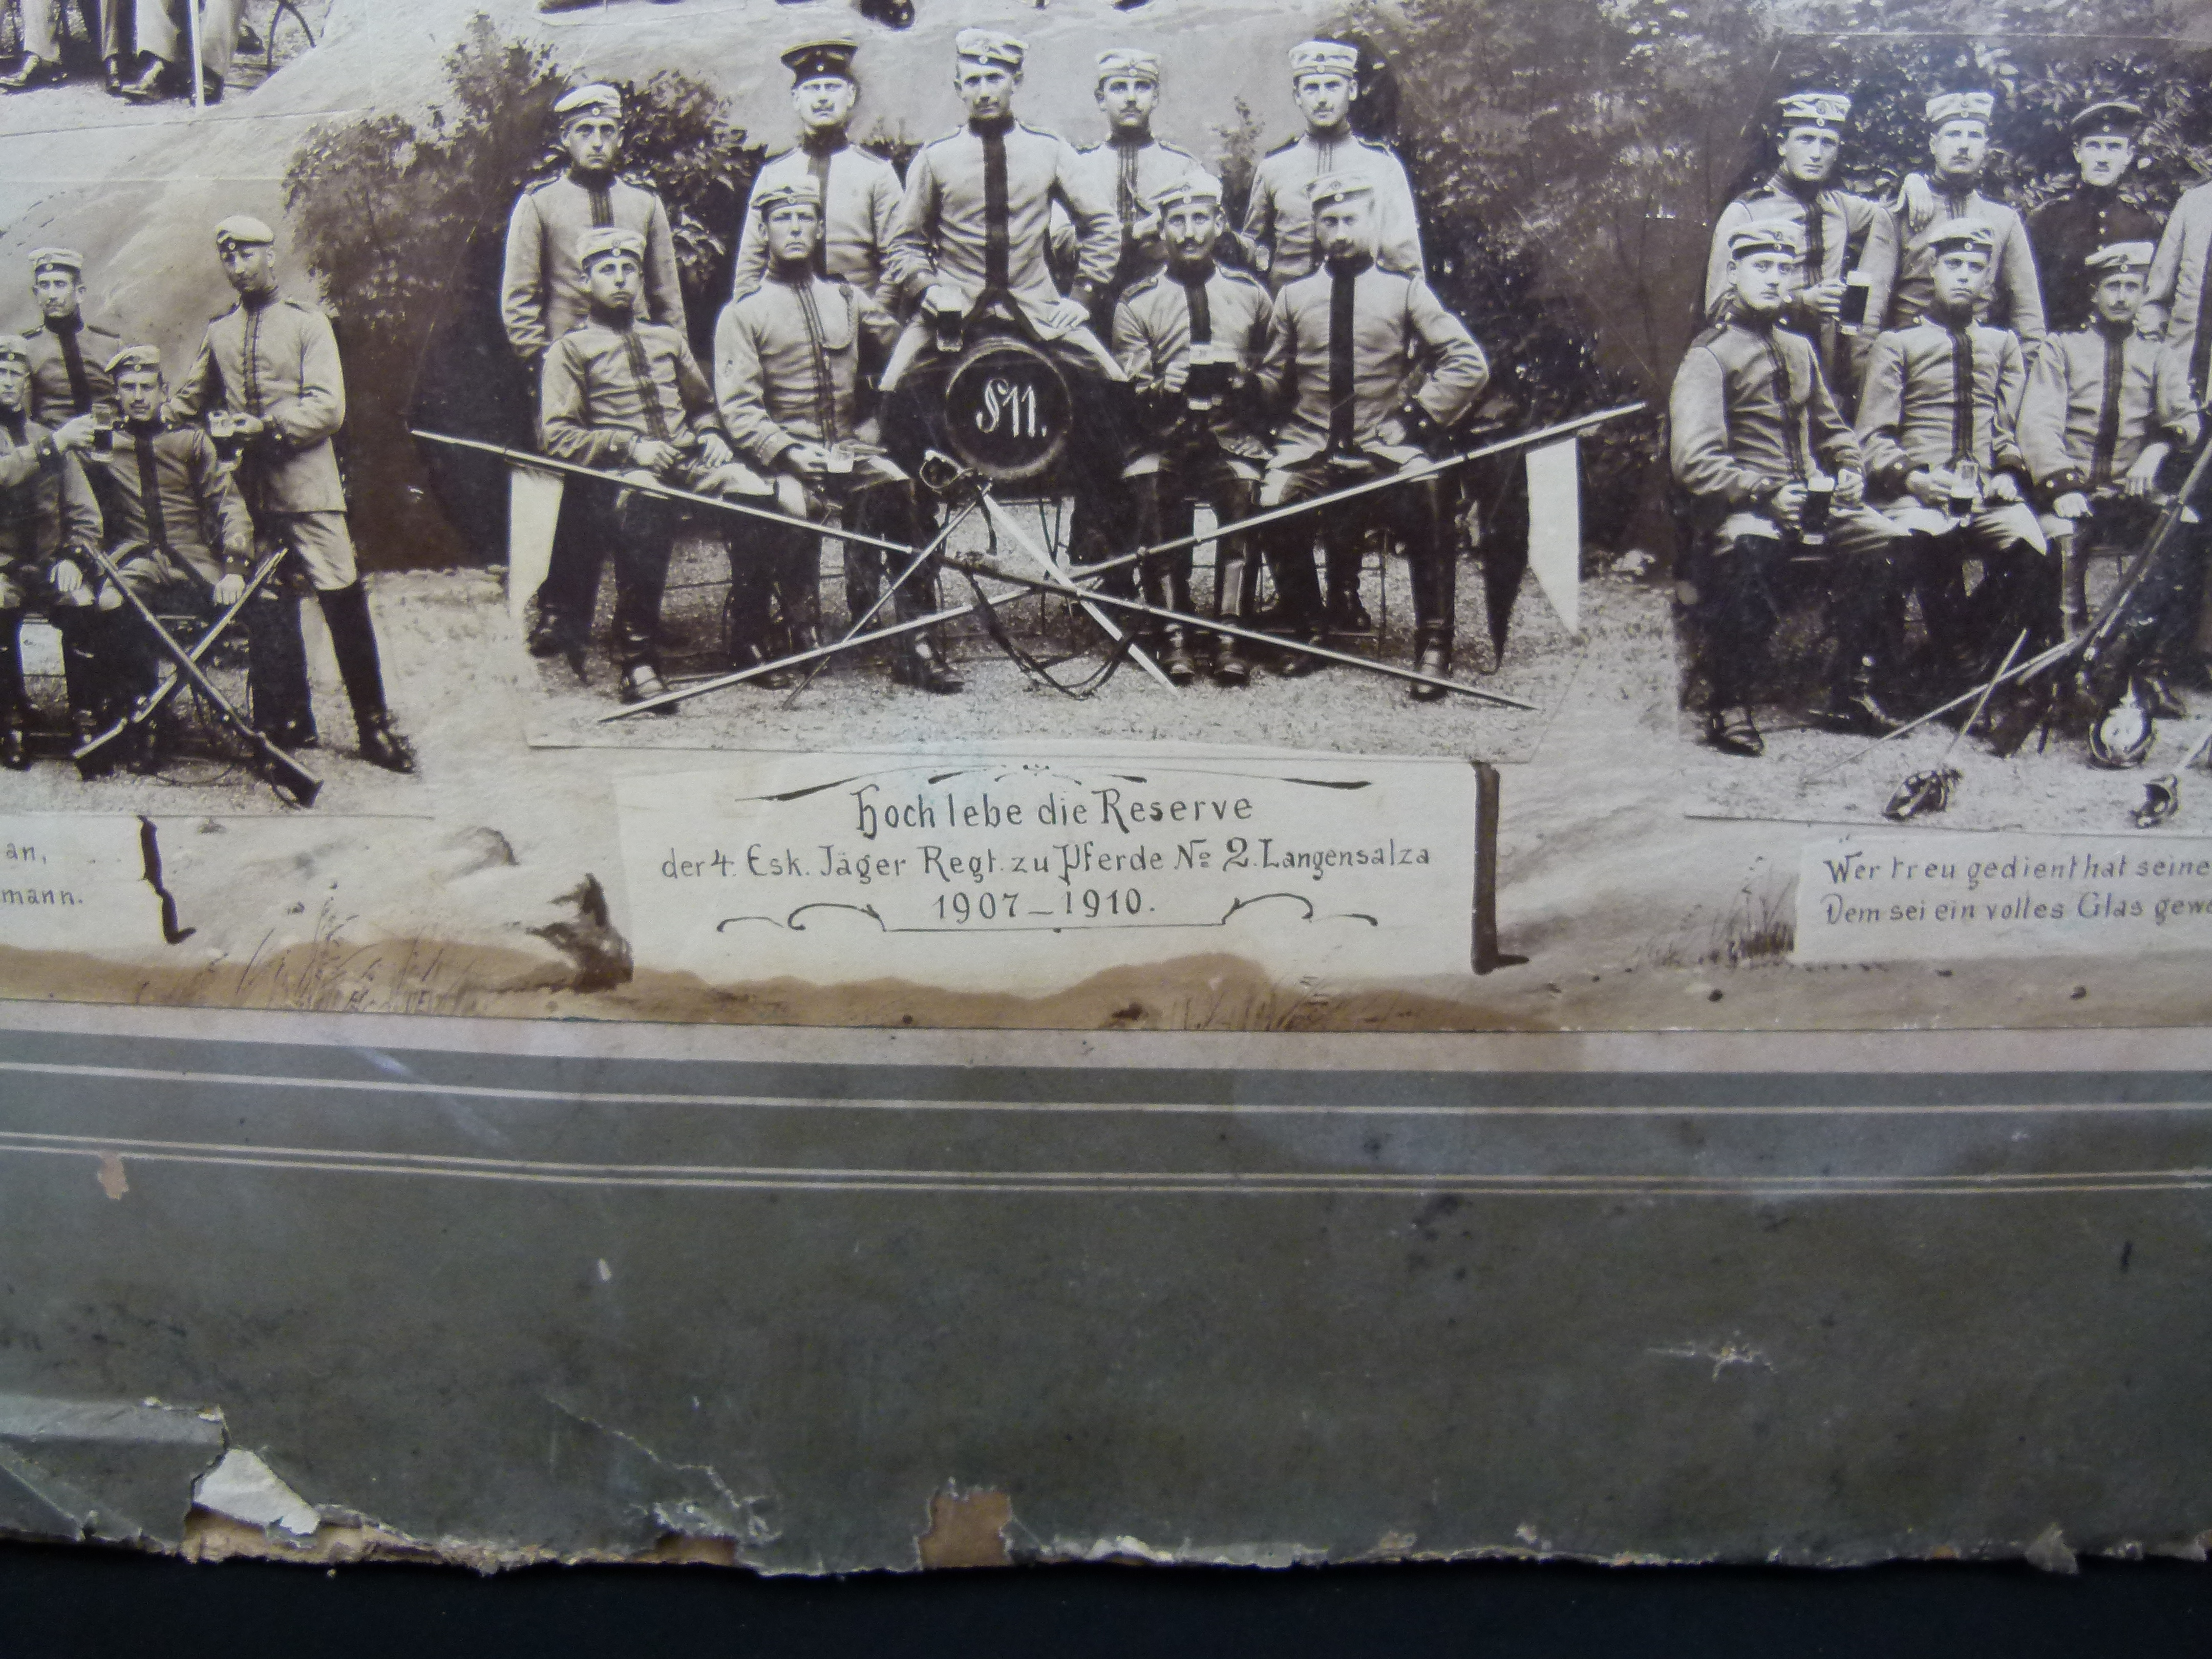 S11.
an,
mann.
Hoch lebe die Reserve
der 4. Esk. Jäger Regt. zu Pferde No 2. Langensalza
1907–1910.
Wer treu gedient hat seine
Dem sei ein volles Glas